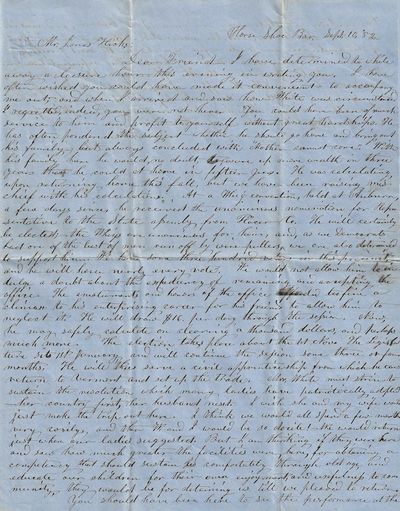 Horse Shoe Bar, Sept 12, 52
Mr Jonas Hicks
Dear Friend I have determined to while
away a leisure hour this evening in writing you. I have
often wished you could have made it convenient to accompany
me out; and when I arrived and saw how White was circumstanced
I regretted certainly you were not here. You could have done
service to him and profit to yourself without great hardships. He
has often pondered the subject whether he should go home and bring out
his family, but always concluded with Mother cannot come. With
his family here he would, no doubt, grow up more wealth in three
years than he could at home in fifteen years. He was calculating
upon returning home this fall, but we have been raising mis
chief with his calculations. At a Whig convention, held at Auburn,
a few days since, he received the unanimous nomination of Rep
sentative to the state Assembly, from Placer Co. He will certainly
be elected the Whigs
had one of the best of men run off by wire pullers, we are also determined
to support him. We have some three hundred votes in this precinct
and he will have nearly every vote. He would not allow him to in
dulge a doubt about the expediency of remaining and accepting the
office. The emoluments and honors of the office
neglect it. He will draw $16 per day through the session. Also,
he may safely calculate on clearing a thousand dollars, and perhaps
much more. The election takes place about the 1st of Nov. The Legisla
ture sits 1st January and will continue the session some three or four
months. He will then serve a civil apprenticeship from which he can
return to Vermont and set up the trade. Mrs. White must strive to
sustain the resolution which many ladies have patriotically adopted
"My country first, my husband next." I wish he and my wife could
just make the trip out here. I think we would all spend a few months
very cosily, and then W and I would be so docile we would return
just when our ladies suggested. But I am thinking if they were here
and saw how much greater the facilities were here, for obtaining a
competency that should sustain us comfortably through old age, and
educate our children for their own enjoyment and usefulness to com
munity, they would be for detaining us till we be pleased to return.
You should have been here to see the performance at the